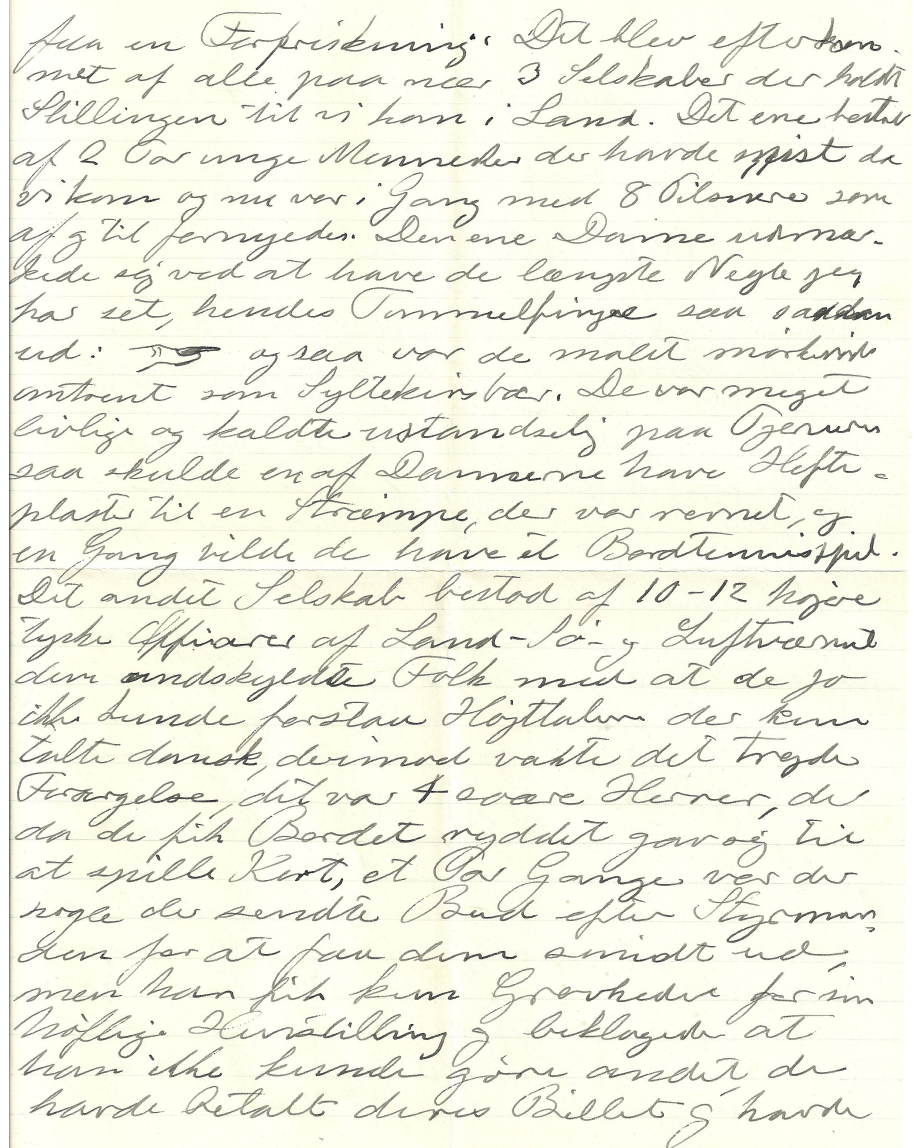 faa en Forfriskning. Det blev efterkom-
met af alle paa nær 3 Selskaber der holdt
Stillingen til vi kom i Land. Det ene bestod
af 2 Par unge Mennesker der havde spist da
vi kom og nu var i Gang med 8 Pilsnere som
af g til fornyedes. Den ene Dame udmær-
kede sig ved at have de længste Negle jeg
har set, hendes Tommelfinger saa saadan
ud: og saa var de malet mørkerøde
omtrent som Syltekirsbær. De var meget
livlige og kaldte ustandselig paa Tjeneren
saa skulde en af Damerne have Hefte-
plaster til en Strømpe, der var revnet, og
en Gang vilde de have et Bordtennisspil.
Det andet Selskab bestod af 10-12 højere
tyske Officerer af Land- Sø- g Luftværnet
dem undskyldte Folk med at de jo
ikke kunde forstaa Højttaleren der kun
talte dansk, derimod vakte det tredje
Forargelse, det var 4 svære Herrer, der
da de fik Bordet ryddet gav sig til
at spille Kort, et Par Gange var der
nogle der sendte Bud efter Styrman-
den for at faa dem smidt ud,
men han fik kun Grovheder for sin
høflige Henstilling g beklagede at
han ikke kunde gøre andet, de
havde betalt deres Billet g havde